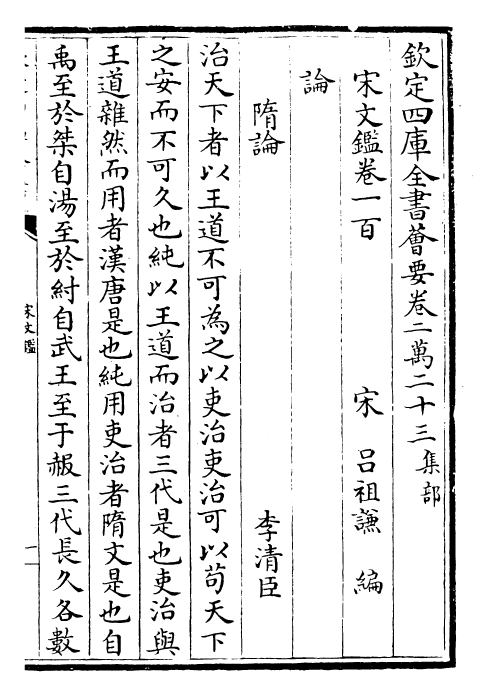 欽定四庫全書薈要卷二萬二十三集部
宋文鑑卷一百
宋 呂祖謙 編
論
隋論 李清臣
治天下者以王道不可為之以吏治吏治可以茍天下
之安而不可久也純以王道而治者三代是也吏治與
王道雜然而用者漢唐是也純用吏治者隋文是也自
禹至於桀自湯至於紂自武王至于赧三代長久各數
宋文鑑
一